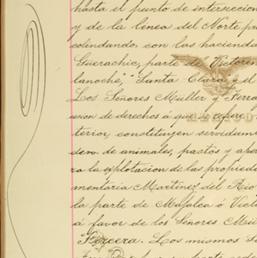 hasta el punto de interseccion
y de la linea del Norte pr
colindando con las hacienda
Guerachic, parte de Victoren
lanoche," "Santa Clara" y el
Los Señores Muller y Ferra
sion de derechos á que se refer
terior, constituyen servidum
den de animales, pastos y
ra la esplotacion de las propieda
mentaria Martinez del Rio
la parte de ó Vic
á favor de los Señores Mu
Tercera. Los mismos Se